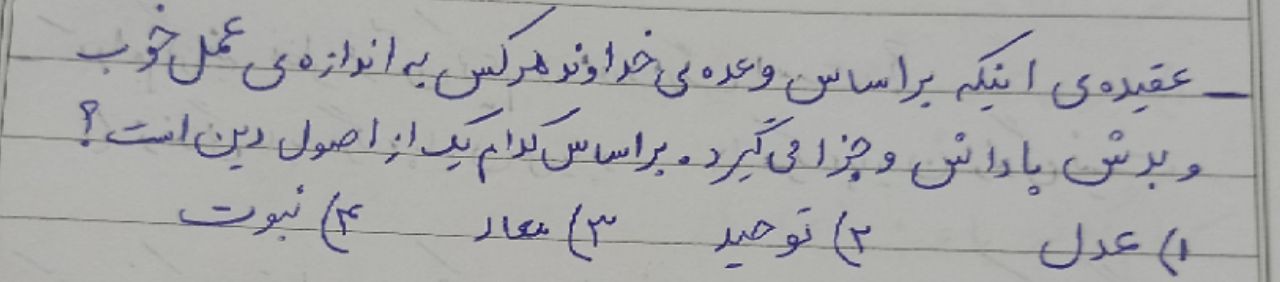 _ عقیده‌ی اینکه براساس وعده‌ی خداوند هرکس به اندازه‌ی عمل خوب
و بدش پاداش و جزا می‌گیرد. براساس کدام یک از اصول دین است؟
۱) عدل ۲) توحید ۳) معاد ۴) نبوت